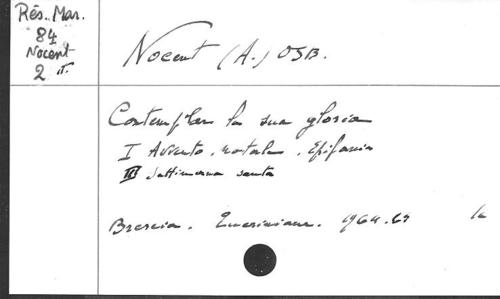 Rés. Mar.
84
Nocent
2 
Nocent (A.) OSB.
Contemplare la sua gloria
I Avvento. natale. Epifania
III settimana santa
Brescia. Queriniana. 1964.